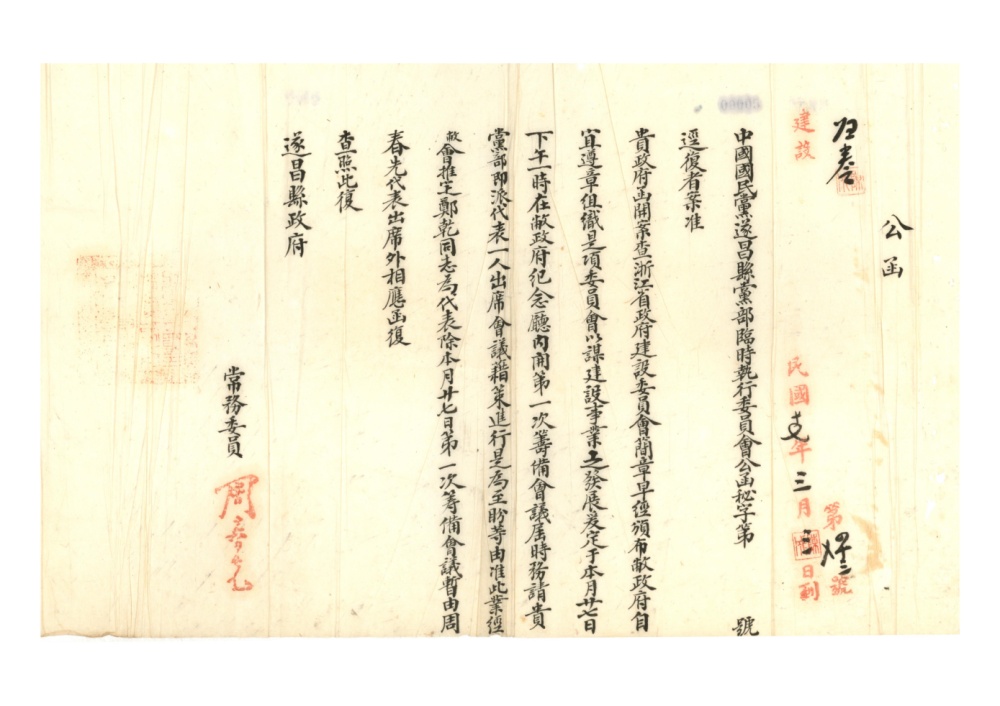 公函
建設
民國 年三月三日到
第 號
中國國民黨遂昌縣黨部臨時執行委員會公函秘字第 號
逕復者案准
貴政府函開案查浙江省政府建設委員會簡章早經頒布敝政府自
宜遵章組織是項委員會以謀建設事業之發展爰定于本月廿七日
下午一時在敝政府紀念廳內開第一次籌備會議屆時務請貴
黨部即派代表一人出席會議藉策進行是爲至盼等由准此業經
敝會推定鄭乾同志爲代表除本月廿七日第一次籌備會議暫由周
春先代表出席外相應函復
查照此復
遂昌縣政府
常務委員
周